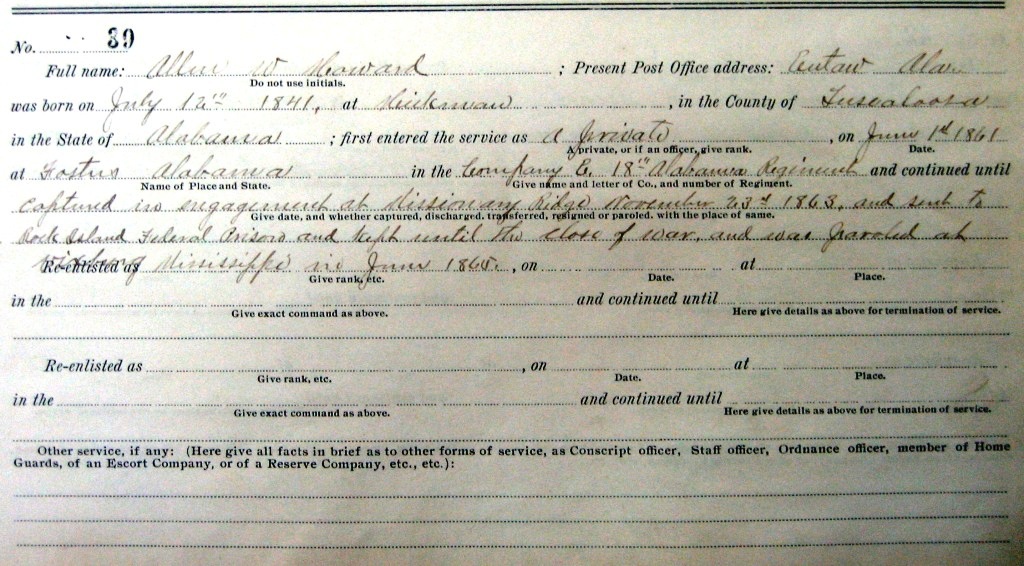 No. 39
Full name: Allen W Howard ; Present Post Office address: Eutaw Ala.
Do not use initials.
was born on July 12th 1841, at Hickman , in the County of Tuscaloosa
in the State of Alabama ; first entered the service as a private , on June 1st 1861
A private, or if an officer, give rank. Date.
at Fosters Alabama in the Company E. 18th Alabama Regiment and continued until
Name of Place and State. Give name and letter of Co., and number of Regiment.
captured in engagement at Missionary Ridge November 23rd 1863, and sent to
Give date, and whether captured, discharged, transferred, resigned or paroled, with the place of same.
Rock Island Federal Prison and kept until the close of war, and was paroled at
Re-enlisted as Mississippi in June 1865. , on at
Give rank, etc. Date. Place.
in the and continued until
Give exact command as above. Here give details as above for termination of service.
Re-enlisted as , on at
Give rank, etc. Date. Place.
in the and continued until
Give exact command as above. Here give details as above for termination of service.
Other service, if any: (Here give all facts in brief as to other forms of service, as Conscript officer, Staff officer, Ordnance officer, member of Home
Guards, of an Escort Company, or of a Reserve Company, etc., etc.):